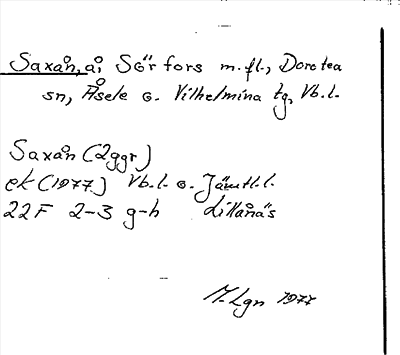 Saxån, å, Sörfors m.fl., Dorotea
sn, Åsele o. Vilhelmina tg, Vb.l.
Saxån (2ggr)
ek (1977) Vb.l. o. Jämtl.l.
22F 2-3 g-h Lillånäs
M.Lgn 1977